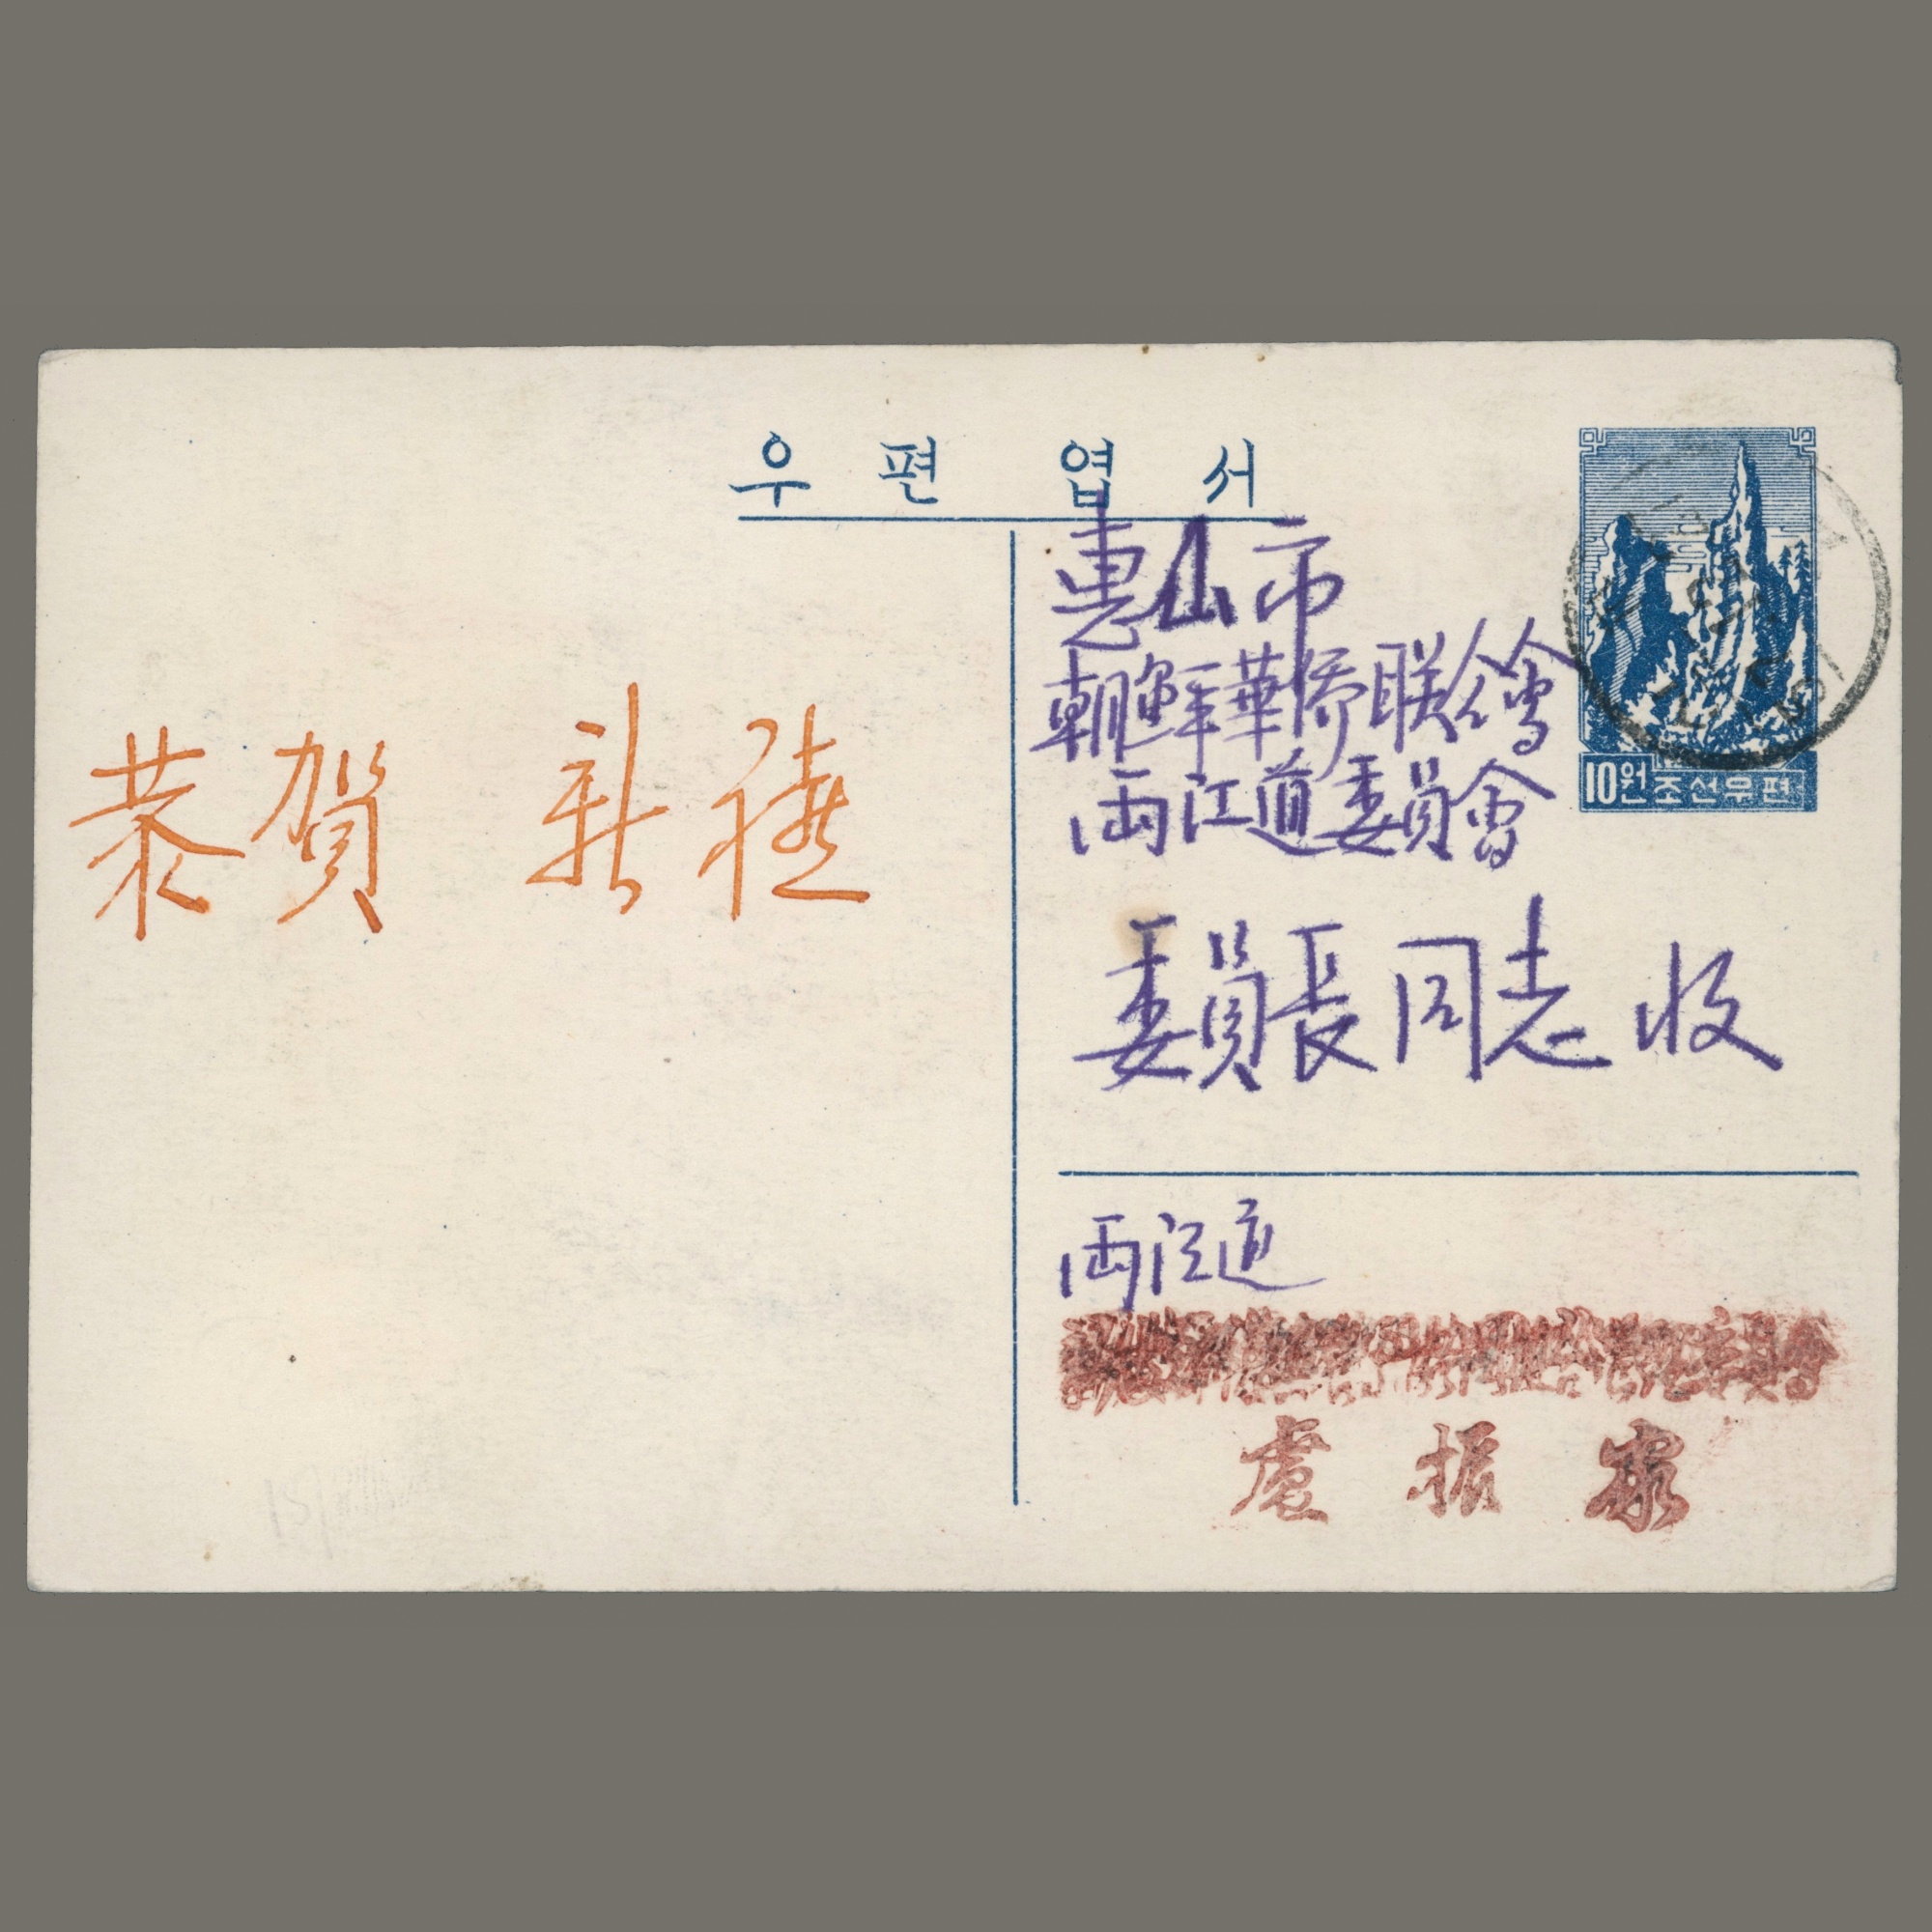 우편엽서
10원 조선우편
恭賀 新禧
惠山市
朝鮮華僑联合會
両江道委員會
委員長同志 收
両江道
振